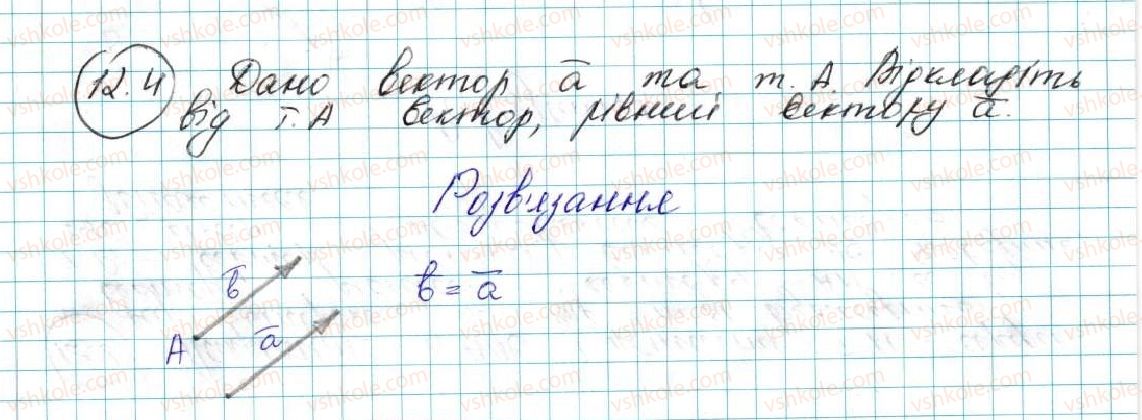 12.4 Дано вектор a̅ та т. А. Відкладіть
від т. А вектор, рівний вектору a̅.
Розв'язання
b̅
b̅ = a̅
А
a̅